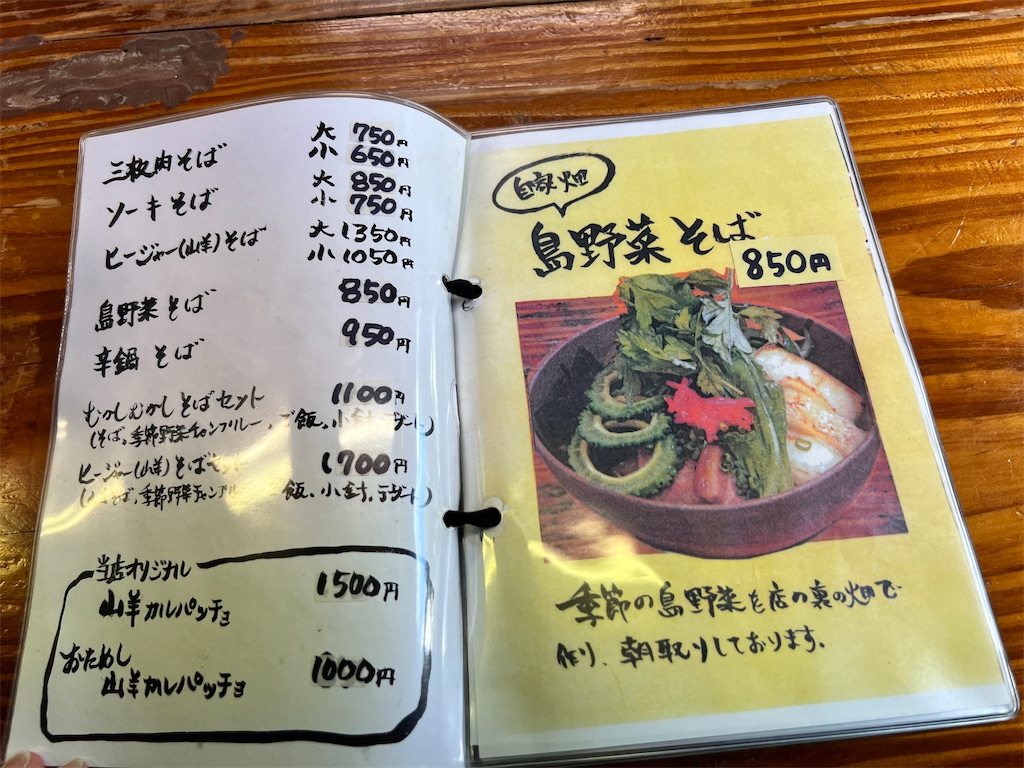 三枚肉そば 大 750円
小 650円
ソーキそば 大 850円
小 750円
ヒージャー(山羊)そば 大 1350円
小 1050円
島野菜そば 850円
辛鍋そば 950円
むかしむかしそばセット 1100円
(そば、季節野菜チャンプルー、ご飯、小鉢、デザート)
ヒージャー(山羊)そばセット 1700円
そば、季節野菜チャンプル 飯、小鉢、デザート)
当店オリジナル
山羊カルパッチョ 1500円
おためし
山羊カルパッチョ 1000円
自家畑
島野菜そば
850円
季節の島野菜を店の裏の畑で
作り、朝取りしております。